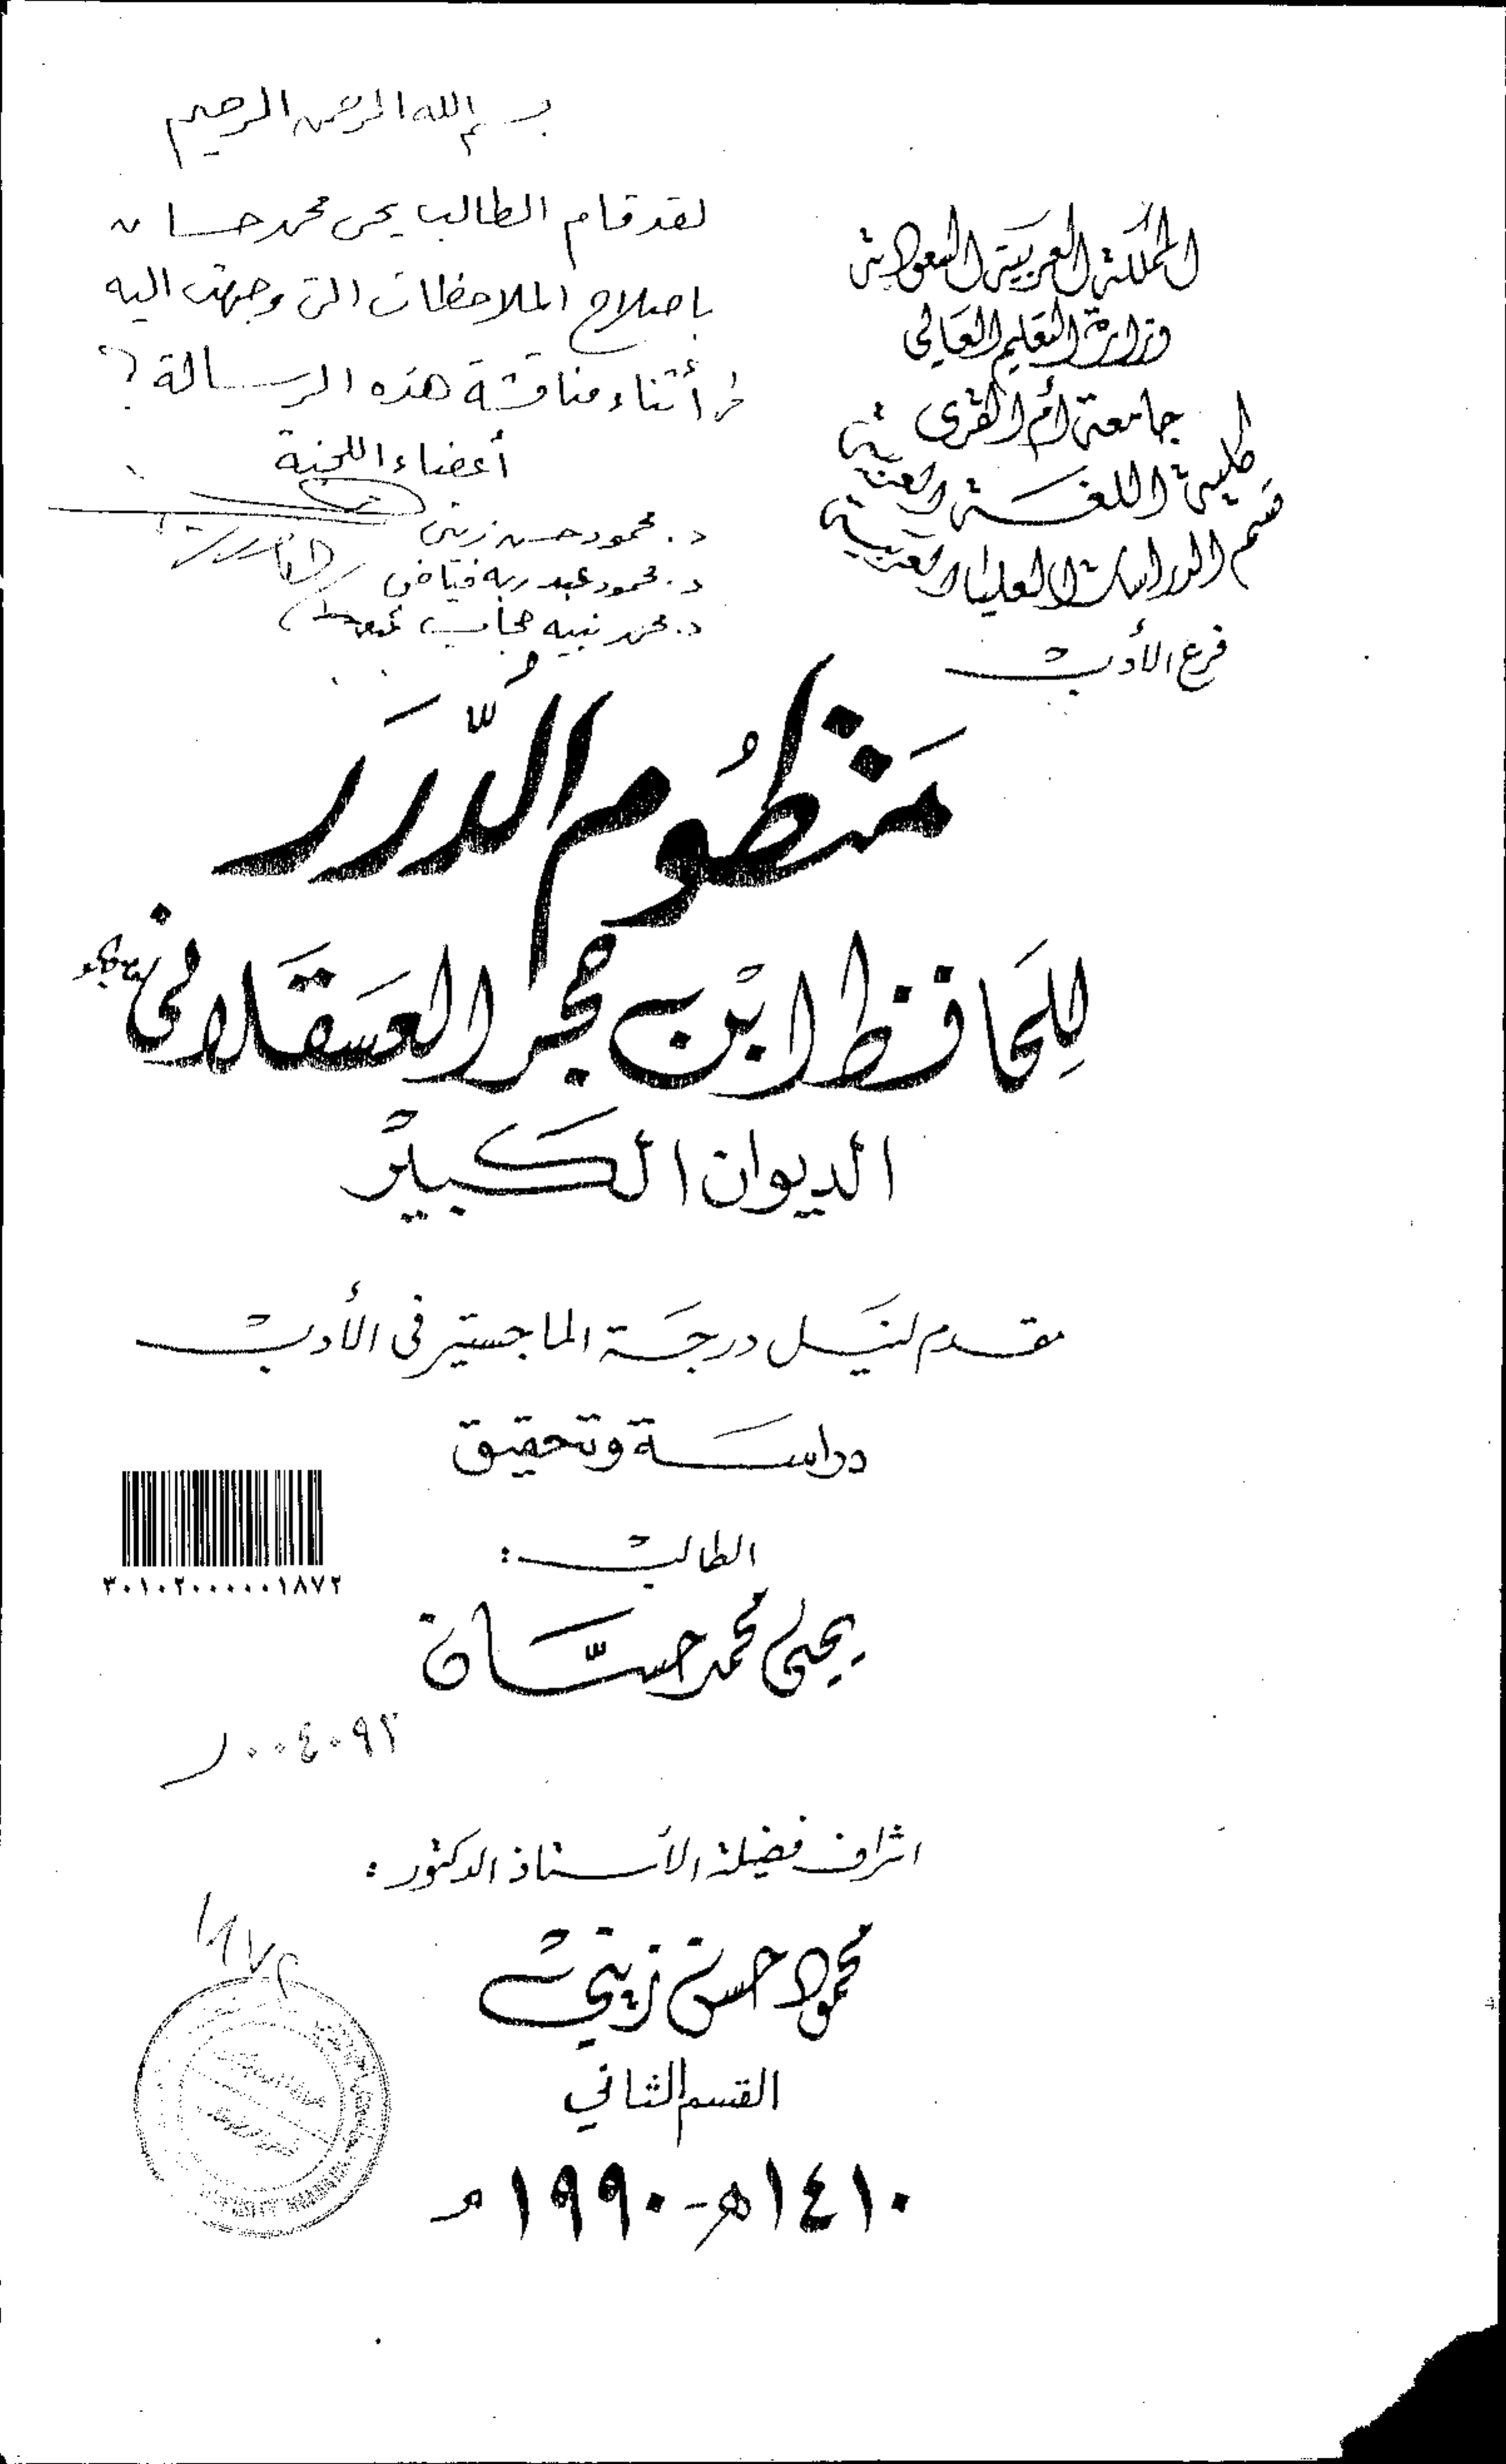 بسم الله الرحمن الرحيم
لقد قام الطالب يحى محمد حسان
باصلاح الملاحظات التى وجهت اليه
فى أثناء مناقشة هذه الرسالة
أعضاء اللجنة
د. محمود حسن زينى
د. محمود عبد ربه فياض
د. محمد نبيه حجاب
المملكة العربية السعودية
وزارة التعليم العالي
جامعة أم القرى
كلية اللغة العربية
قسم الدراسات العليا العربية
فرع الأدب
مَنظُوم الدُّرَر
لِلحَافظ ابْن حجر العَسقَلاني
الديوان الكَبير
مقدم لنَيل درجَة الماجستير فى الأدب
دراسَة وتحقيق
الطالب :
٣٠١٠٢٠٠٠٠٠١٨٧٢
يحيى محمد حسَّان
٠٠٤٠٩٢
اشراف فضيلة الأستاذ الدكتور :
١٨٧٢
محمود حسن زيني
القسم الثاني
١٤١٠هـ - ١٩٩٠م